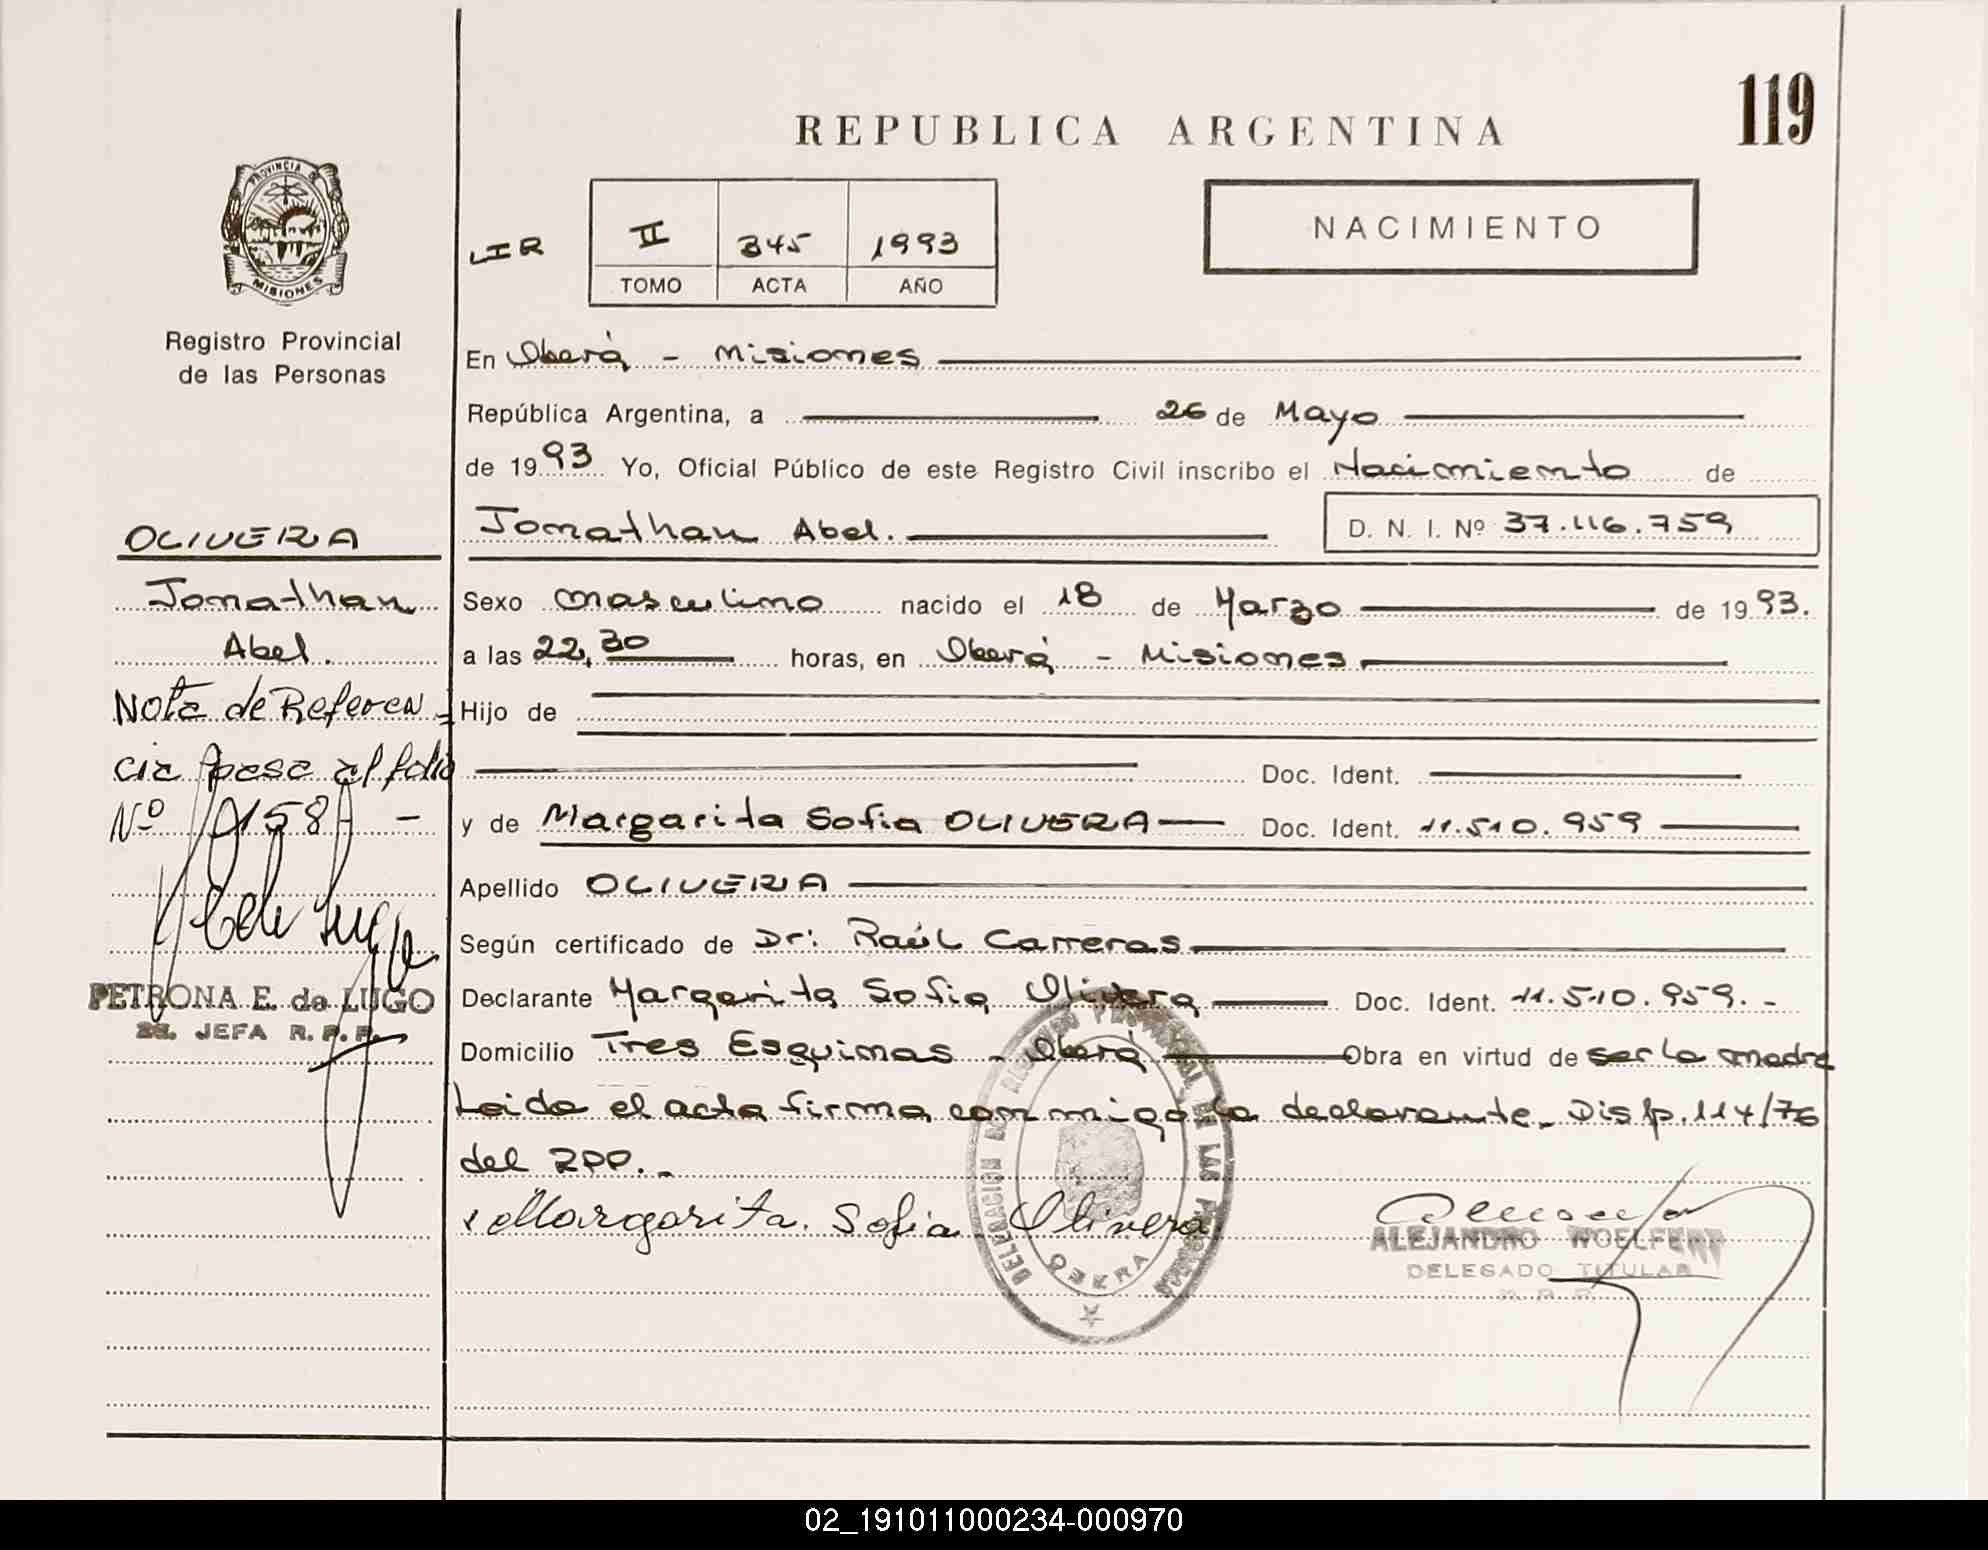 119
REPUBLICA ARGENTINA
PROVINCIA DE
MISIONES
NACIMIENTO
LIR
II 345 1993
TOMO ACTA AÑO
Registro Provincial
de las Personas
En Oberá - Misiones
República Argentina, a 26 de Mayo
de 1993 Yo, Oficial Público de este Registro Civil inscribo el Nacimiento de
Jonathan Abel. D. N. I. Nº 37.116.759
Sexo masculino nacido el 18 de Marzo de 1993.
a las 22,30 horas, en Oberá - Misiones
Hijo de
Doc. Ident.
y de Margarita Sofia OLIVERA Doc. Ident. 11.510.959
Apellido OLIVERA
Según certificado de Dr: Raúl Carreras
Declarante Margarita Sofia Olivera Doc. Ident. 11.510.959. -
Domicilio Tres Esquinas - Oberá Obra en virtud de ser la madre
Leida el acta firma conmigo la declarante. Disp. 114/76
del RPP. -
Margarita. Sofia Olivera
DELEGACION DEL REGISTRO PROVINCIAL DE LAS PERSONAS
OBERA
ALEJANDRO WOELFERT
DELEGADO TITULAR
OLIVERA
Jonathan
Abel.
Nota de Referen
cia pasa al folio
Nº 158 -
PETRONA E. de LUGO
JEFA R. P. P.
02_191011000234-000970